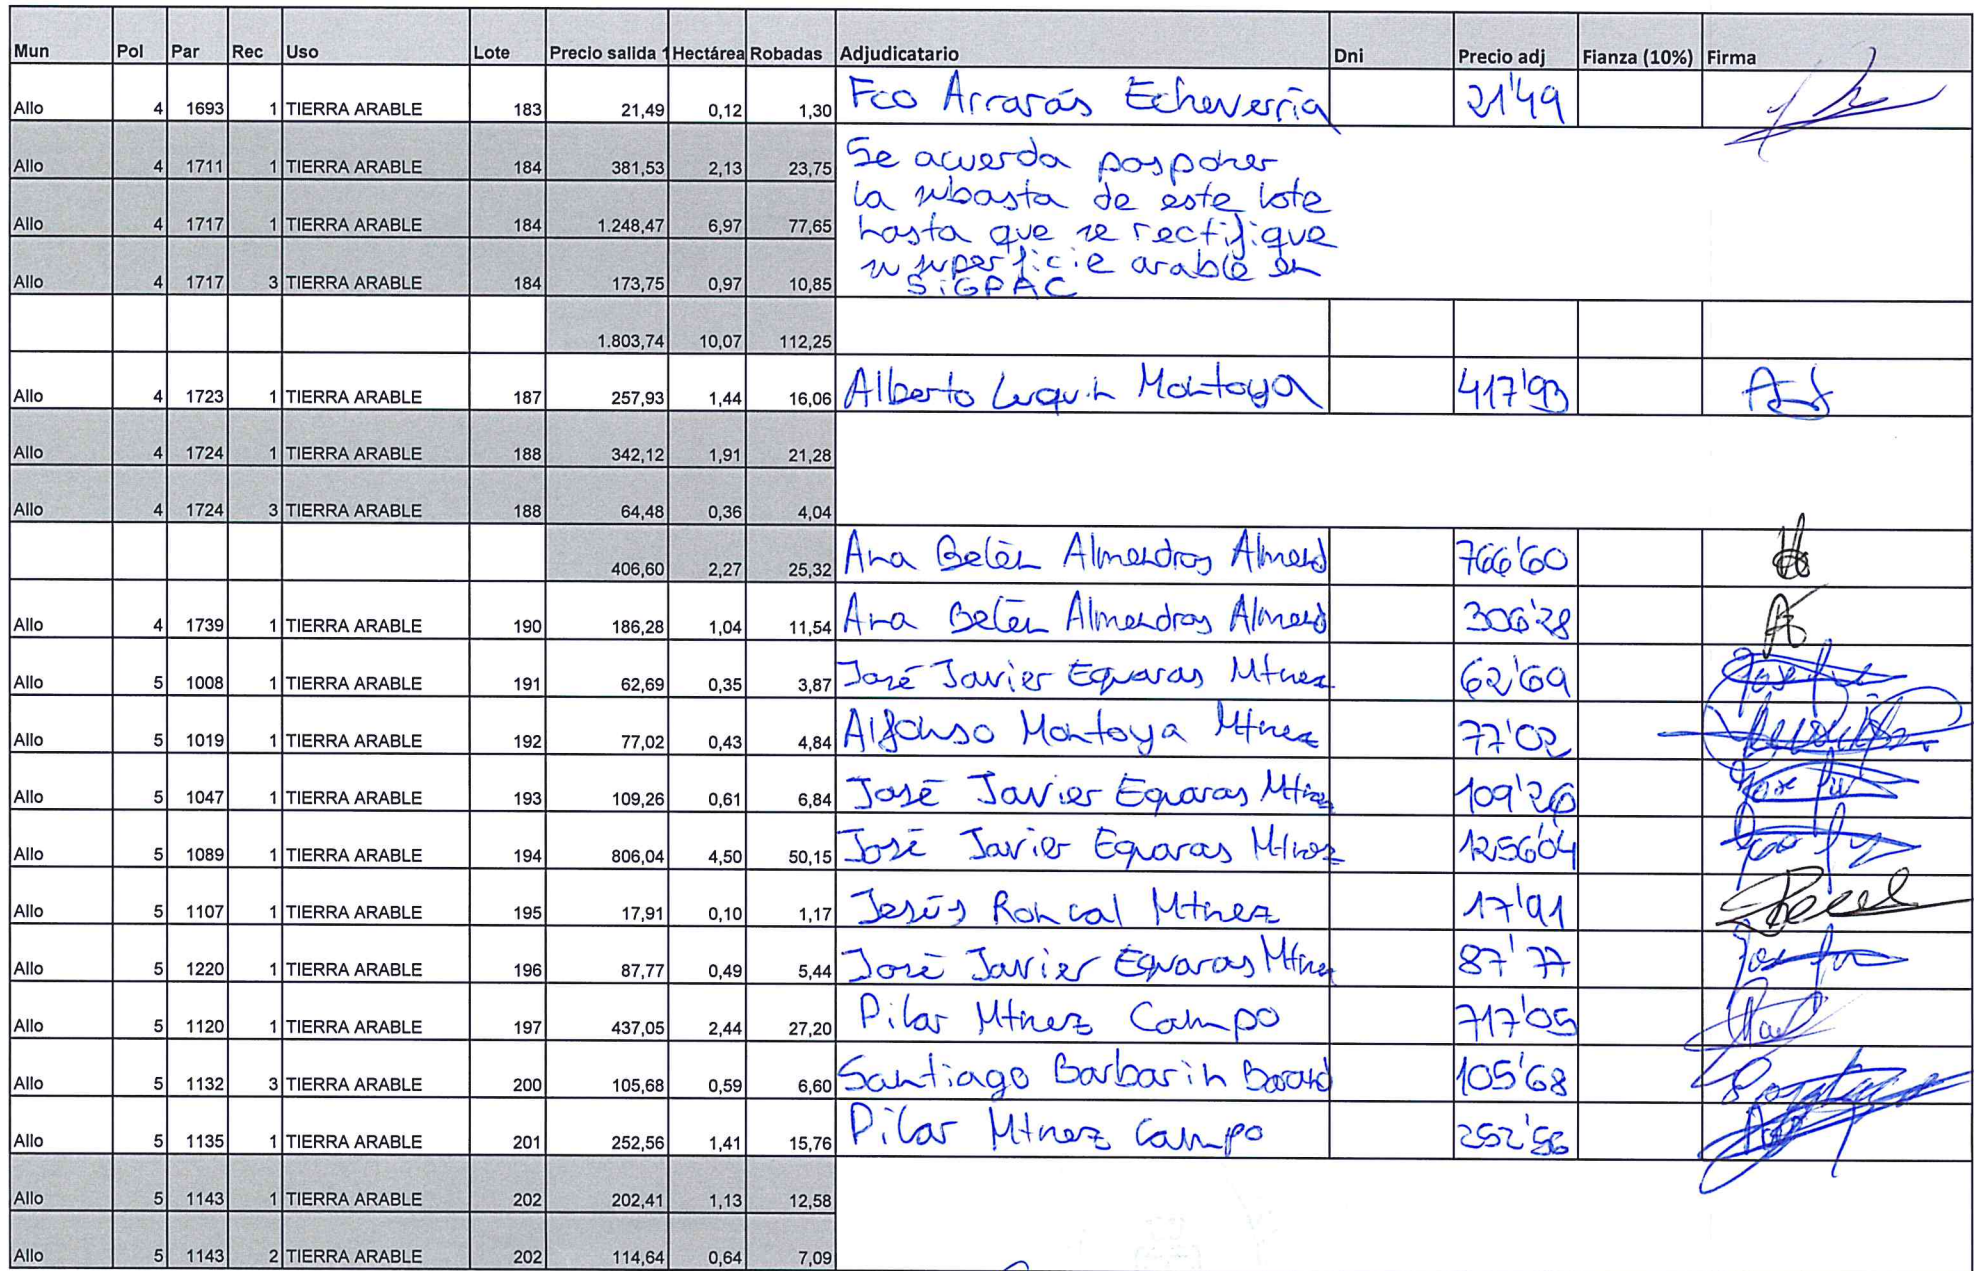 Mun Pol Par Rec Uso Lote Precio salida 1 Hectárea Robadas Adjudicatario Dni Precio adj Fianza (10%) Firma
Allo 4 1693 1 TIERRA ARABLE 183 21,49 0,12 1,30 Fco Arrarás Echeverría 21'49
Allo 4 1711 1 TIERRA ARABLE 184 381,53 2,13 23,75
Se acuerda posponer
la subasta de este lote
Allo 4 1717 1 TIERRA ARABLE 184 1.248,47 6,97 77,65
hasta que se rectifique
su superficie arable en
Allo 4 1717 3 TIERRA ARABLE 184 173,75 0,97 10,85
SIGPAC
1.803,74 10,07 112,25
Allo 4 1723 1 TIERRA ARABLE 187 257,93 1,44 16,06 Alberto Luquin Montoya 417'93
Allo 4 1724 1 TIERRA ARABLE 188 342,12 1,91 21,28
Allo 4 1724 3 TIERRA ARABLE 188 64,48 0,36 4,04
406,60 2,27 25,32 Ana Belén Almendros Almend 766'60
Allo 4 1739 1 TIERRA ARABLE 190 186,28 1,04 11,54 Ana Belén Almendros Almend 306'28
Allo 5 1008 1 TIERRA ARABLE 191 62,69 0,35 3,87 José Javier Eguaras Mtnez 62'69
Allo 5 1019 1 TIERRA ARABLE 192 77,02 0,43 4,84 Alfonso Montoya Mtnez 77'02
Allo 5 1047 1 TIERRA ARABLE 193 109,26 0,61 6,84 José Javier Eguaras Mtnez 109'26
Allo 5 1089 1 TIERRA ARABLE 194 806,04 4,50 50,15 José Javier Eguaras Mtnez 1256'04
Allo 5 1107 1 TIERRA ARABLE 195 17,91 0,10 1,17 Jesús Roncal Mtnez 17'91
Allo 5 1220 1 TIERRA ARABLE 196 87,77 0,49 5,44 José Javier Eguaras Mtnez 87'77
Allo 5 1120 1 TIERRA ARABLE 197 437,05 2,44 27,20 Pilar Mtnez Campo 717'05
Allo 5 1132 3 TIERRA ARABLE 200 105,68 0,59 6,60 Santiago Barbarin 105'68
Allo 5 1135 1 TIERRA ARABLE 201 252,56 1,41 15,76 Pilar Mtnez Campo 252'56
Allo 5 1143 1 TIERRA ARABLE 202 202,41 1,13 12,58
Allo 5 1143 2 TIERRA ARABLE 202 114,64 0,64 7,09